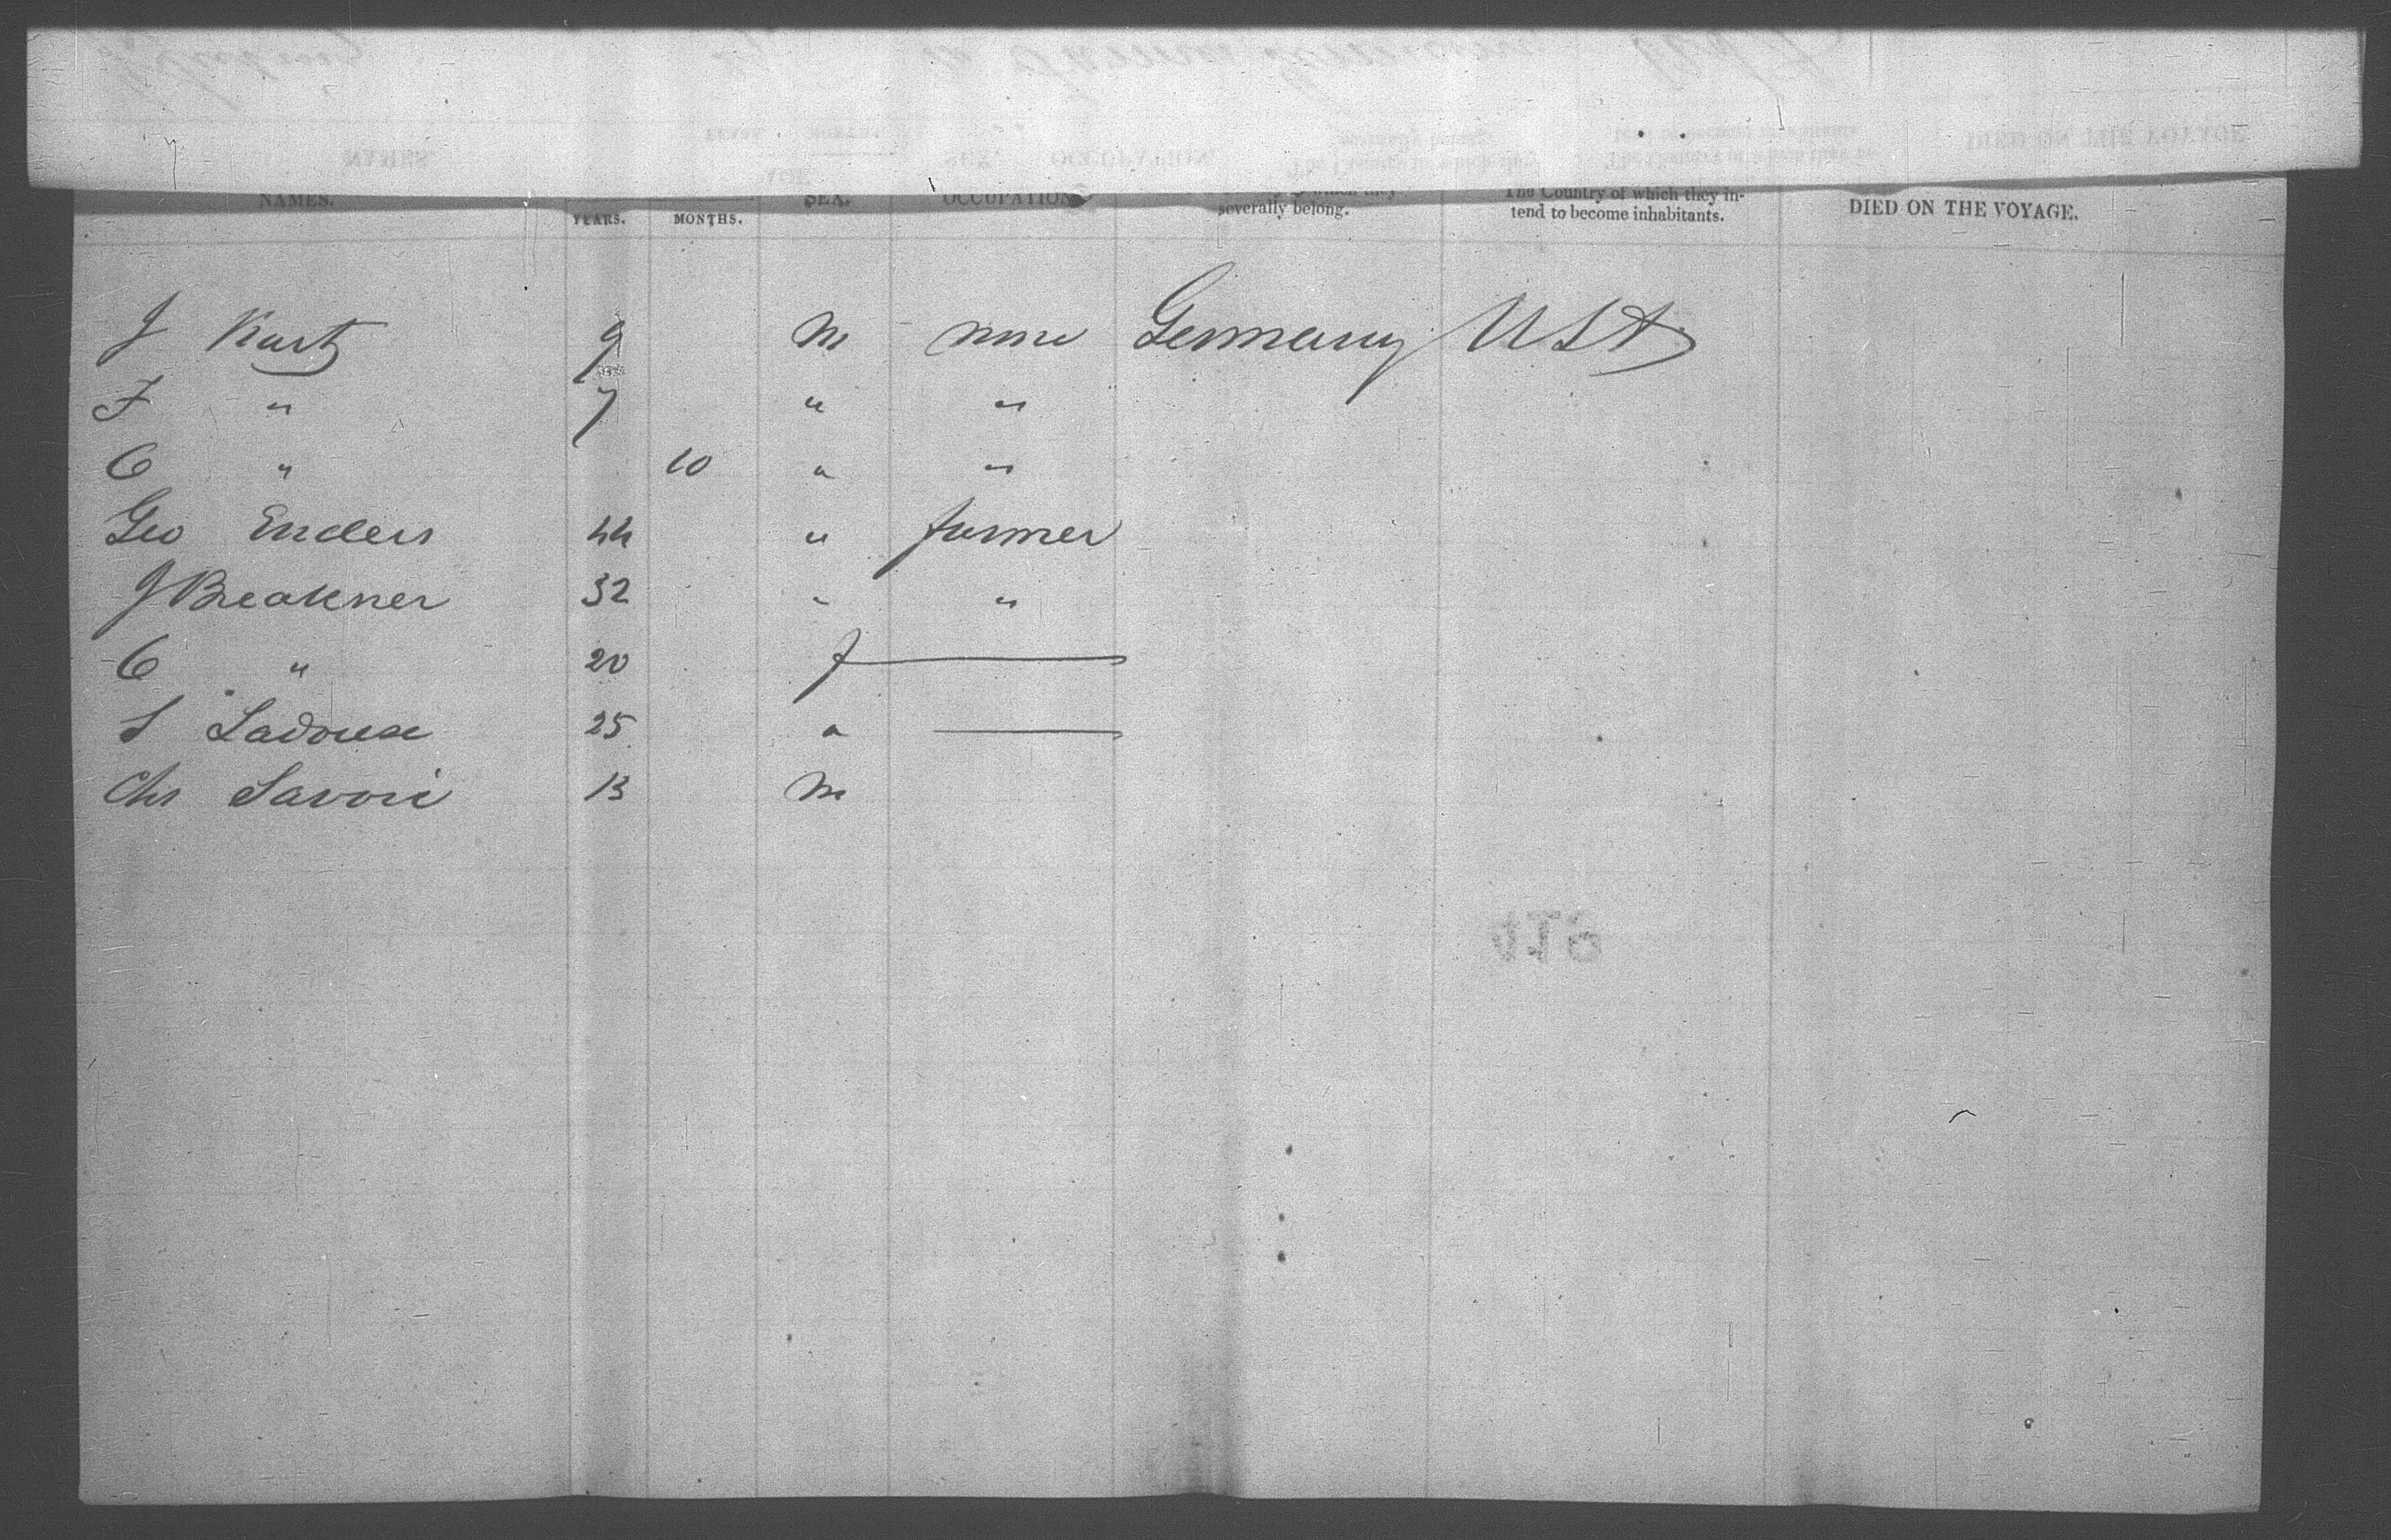 NAMES. YEARS. MONTHS. SEX. OCCUPATION severally belong. The Country of which they in-
tend to become inhabitants. DIED ON THE VOYAGE.
J Kurtz 9 M none Germany USA
F " 7 " "
C " 10 " "
Geo Enders 44 " farmer
J Breakner 32 " "
C " 20 f
S Ladouse 25 "
Chs Savoie 13 M